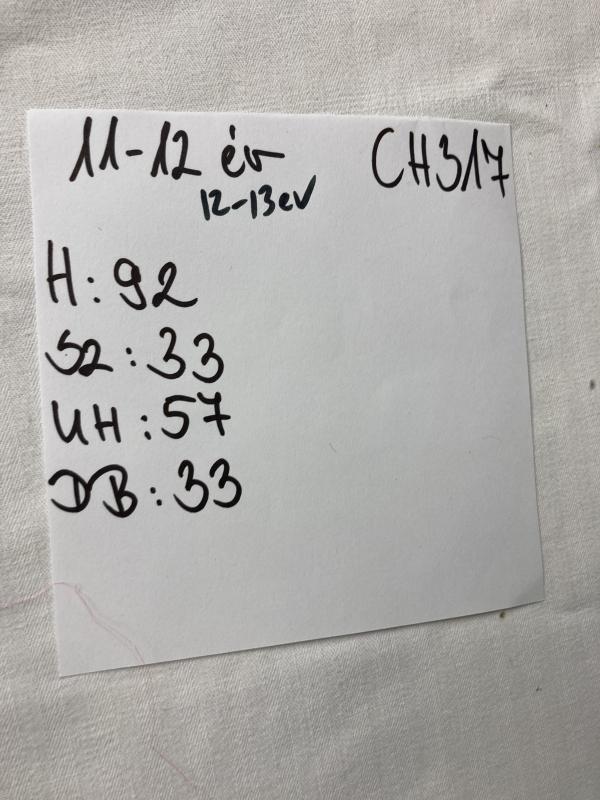 11-12 év CH317
12-13 ev
H: 92
SZ: 33
UH: 57
DB: 33